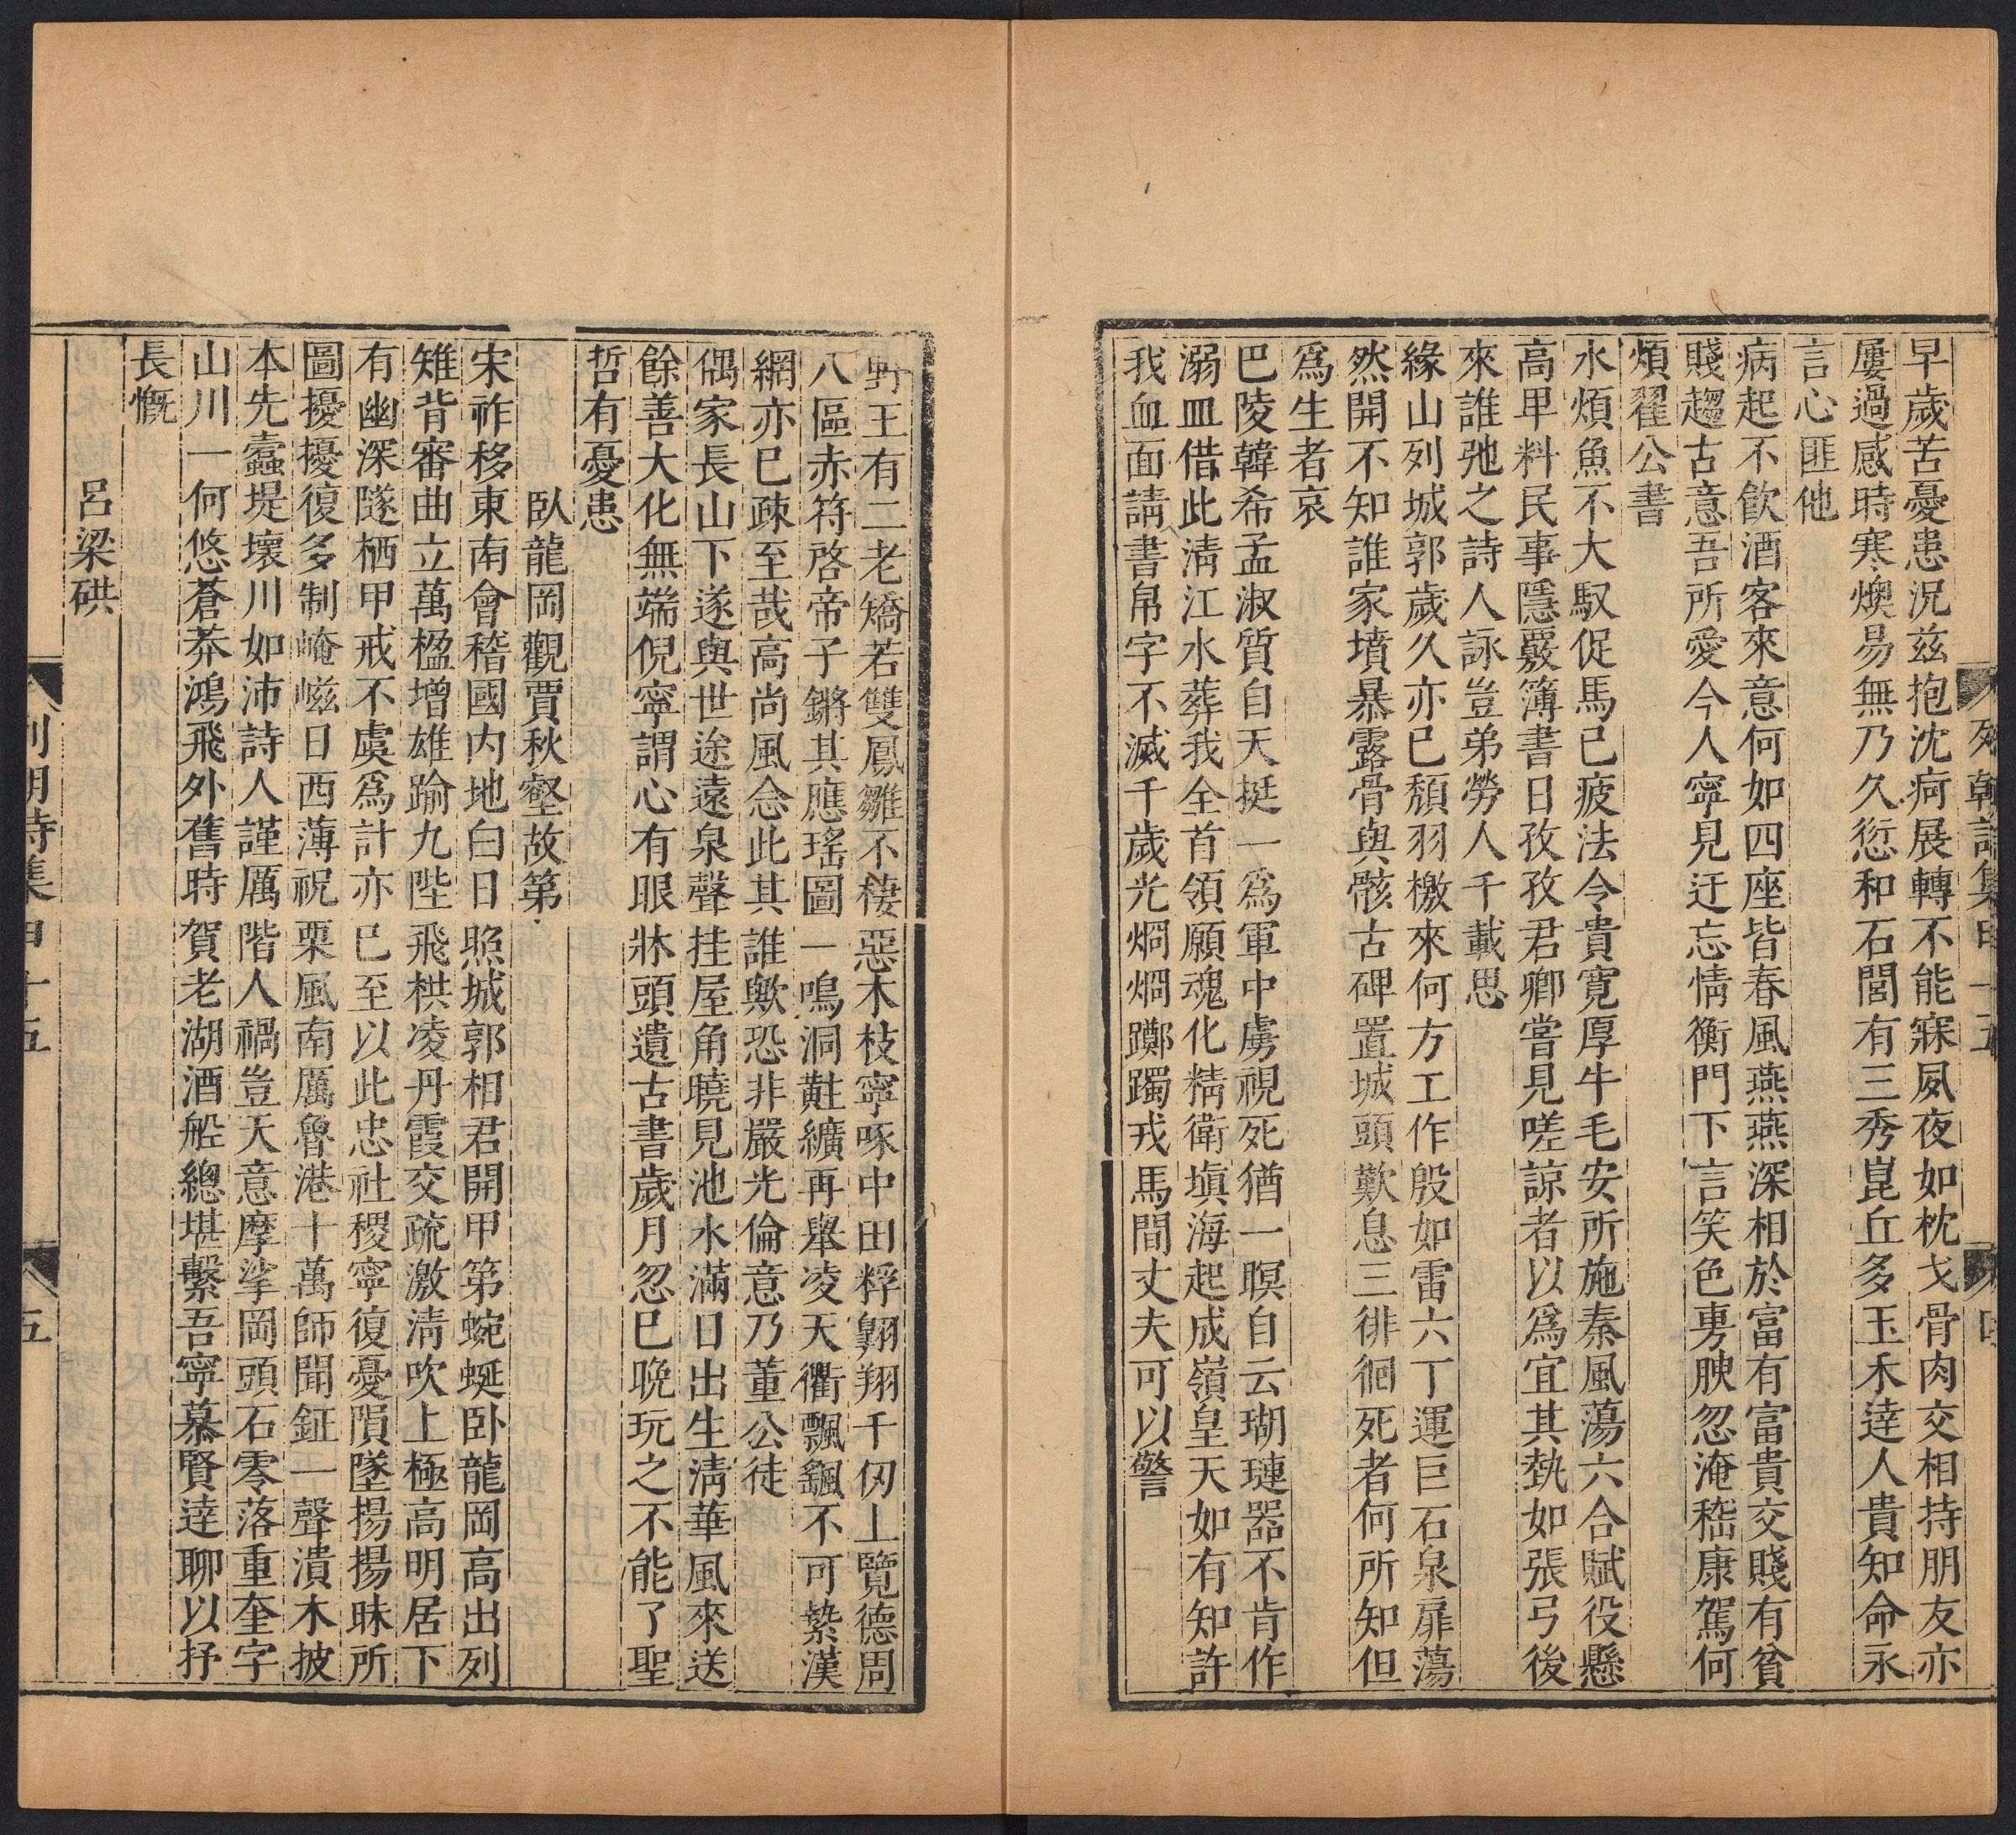 早歲苦憂患況兹抱沈疴展轉不能寐夙夜如枕戈骨肉交相持朋友亦
屢過感時寒燠易無乃久愆和石閭有三秀崑丘多玉禾逹人貴知命永
言心匪他
病起不飲酒客來意何如四座皆春風燕燕深相於富有富貴交賤有貧
賤趨古意吾所愛今人寧見迂忘情衡門下言笑色旉腴忽淹嵇康駕何
煩翟公書
水煩魚不大馭促馬已疲法令貴寬厚牛毛安所施秦風蕩六合賦役懸
高卑料民事隱覈簿書日孜孜君卿嘗見嗟諒者以爲宜其埶如張弓後
來誰弛之詩人詠豈弟勞人千載思
緣山列城郭歲久亦已頽羽檄來何方工作殷如雷六丁運巨石泉扉蕩
然開不知誰家墳暴露骨與骸古碑置城頭歎息三徘徊死者何所知但
爲生者哀
巴陵韓希孟淑質自天挺一爲軍中虜視死猶一瞑自云瑚璉器不肯作
溺皿借此清江水葬我全首領願魂化精衛塡海起成嶺皇天如有知許
我血面請書帛字不滅千歲光烱烱躑躅戎馬間丈夫可以警
野王有二老矯若雙鳳雛不棲惡木枝寧啄中田稃翺翔千仞上覽德周
八區赤符啓帝子鏘其應瑤圖一鳴洞黈纊再舉凌天衢飄颻不可縶漢
網亦已疎至哉高尚風念此其誰歟恐非嚴光倫意乃董公徒
偶家長山下遂與世途遠泉聲挂屋角曉見池水滿日出生清華風來送
餘善大化無端倪寧謂心有眼牀頭遺古書歲月忽已晚玩之不能了聖
哲有憂患
臥龍岡觀賈秋壑故第
宋祚移東南會稽國内地白日照城郭相君開甲第蜿蜒卧龍岡高出列
雉背審曲立萬楹增雄踰九陛飛栱凌丹霞交疏激清吹上極高明居下
有幽深隧栖甲戒不虞爲計亦已至以此忠社稷寧復憂隕墜揚揚昧所
圖擾擾復多制崦嵫日西薄祝栗風南厲魯港十萬師聞鉦一聲潰木披
本先蠹堤壞川如沛詩人謹厲階人禍豈天意摩挲岡頭石零落重奎字
山川一何悠蒼莽鴻飛外舊時賀老湖酒船總堪繫吾寧慕賢逹聊以抒
長慨
呂梁硔